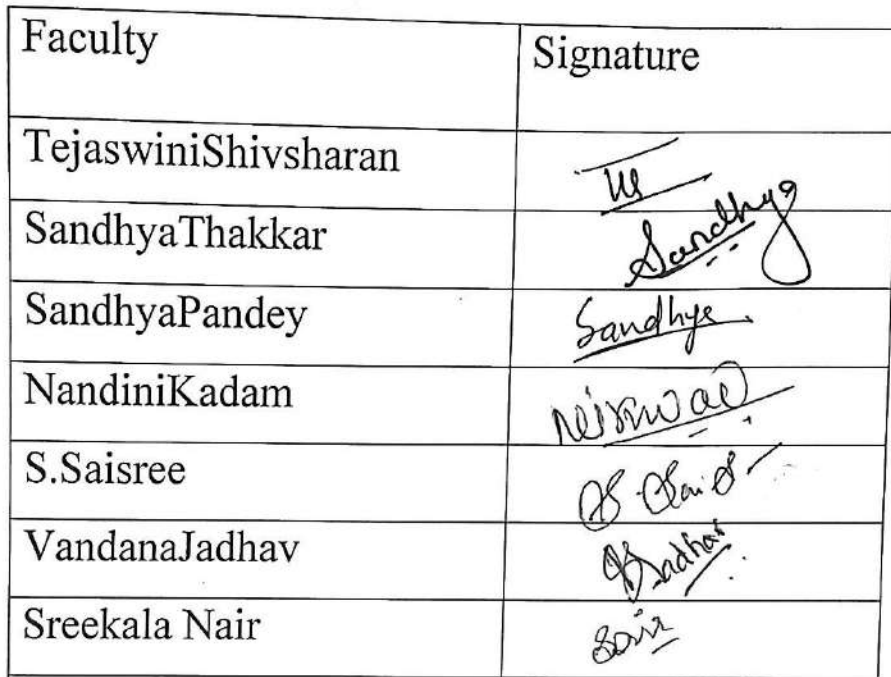 Faculty Signature
TejaswiniShivsharan
SandhyaThakkar Sandhya
SandhyaPandey Sandhya
NandiniKadam
S.Saisree S. Sai S
VandanaJadhav VJadhav
Sreekala Nair